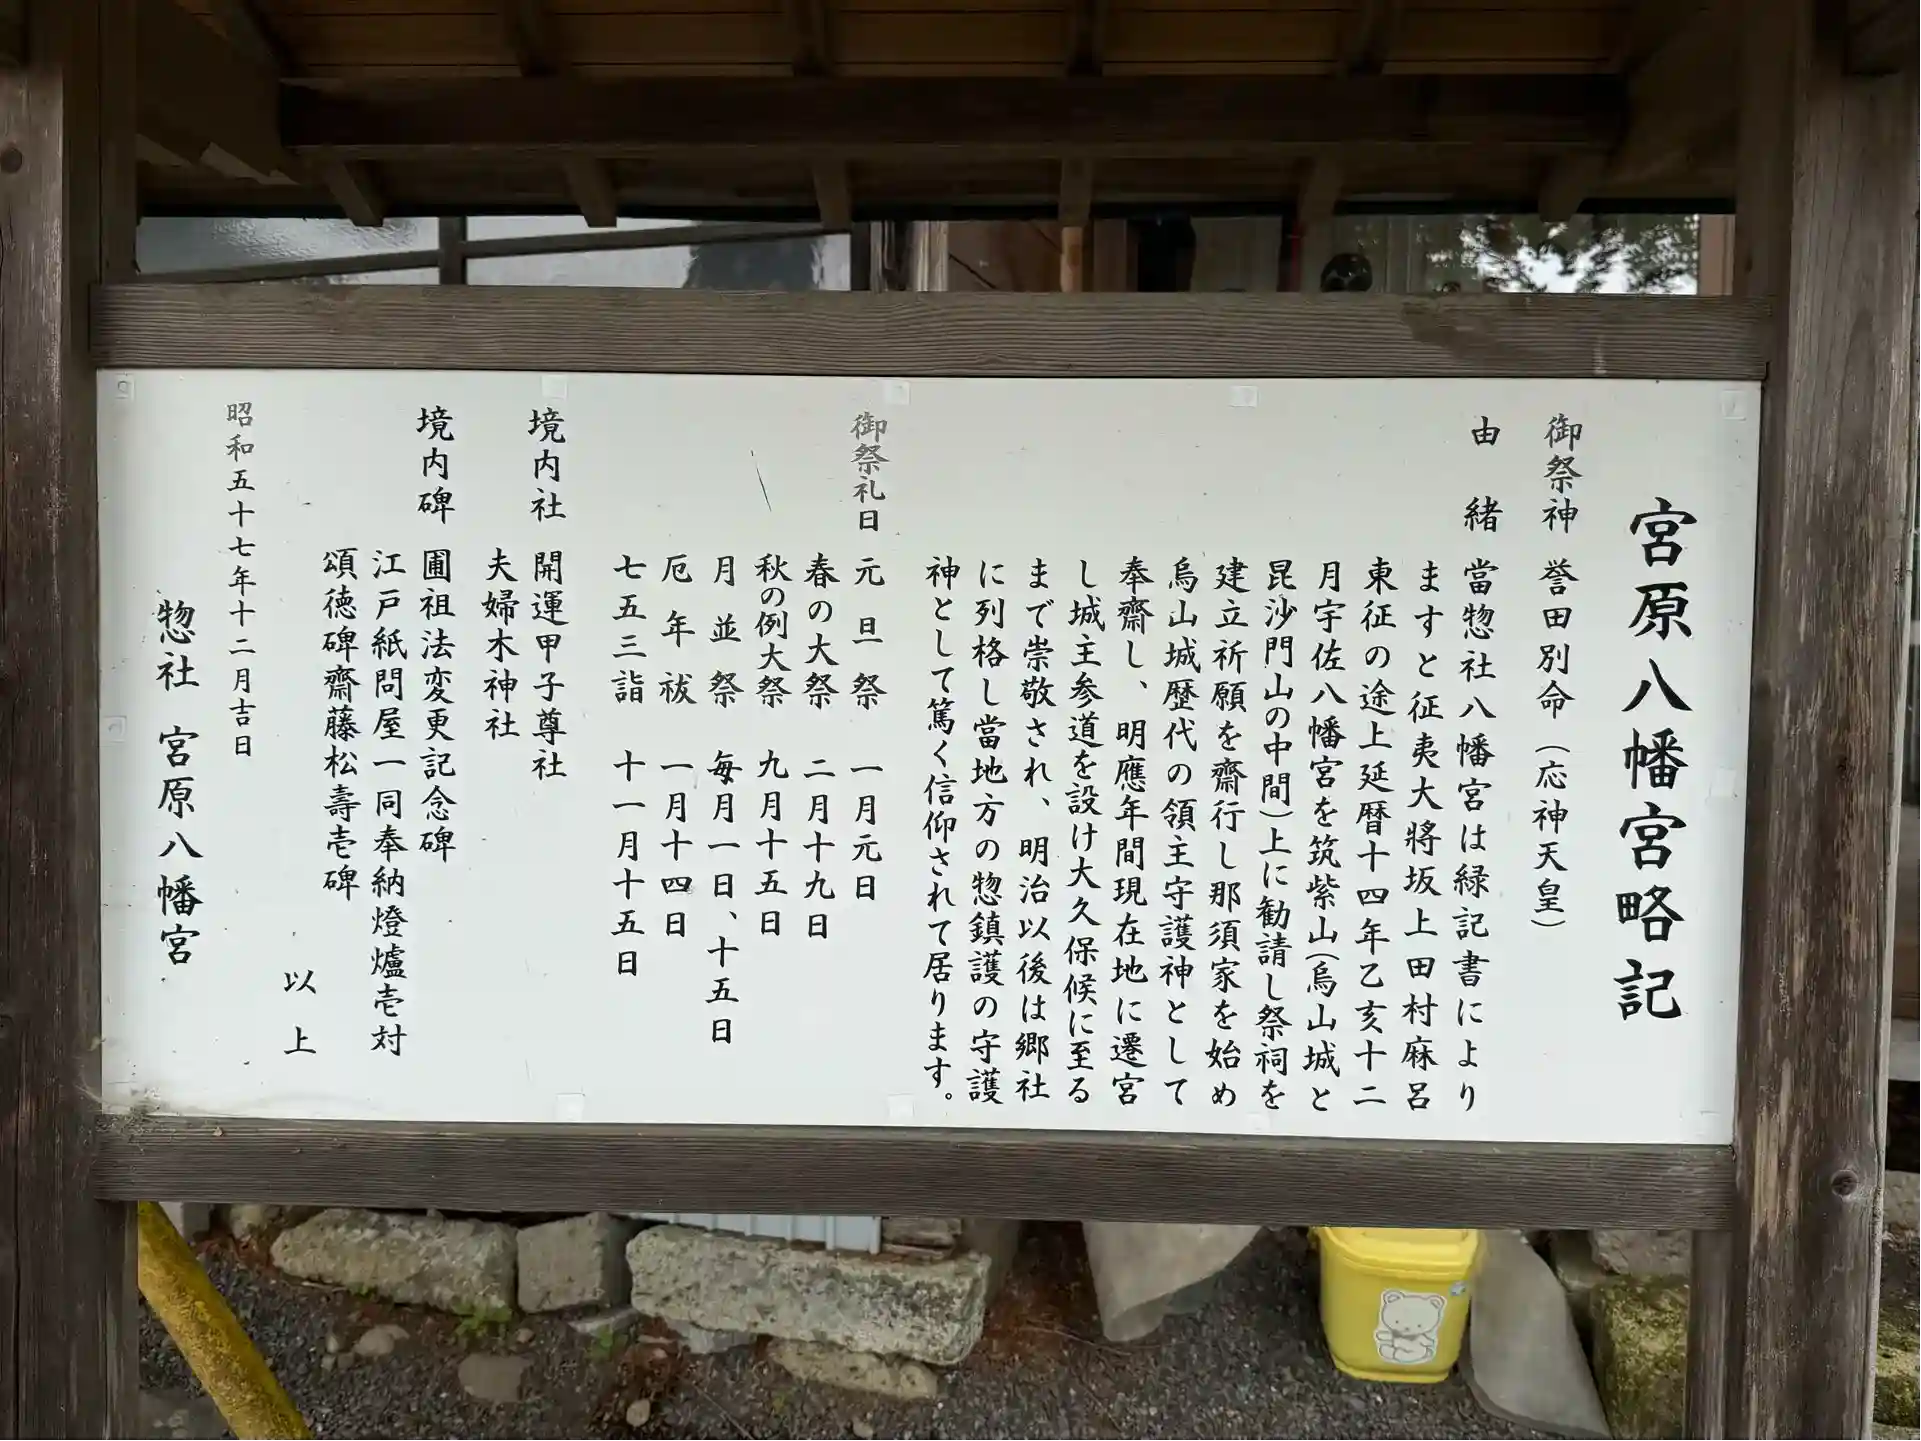 宮原八幡宮略記
御祭神 誉田別命（応神天皇）
由緒 當惣社八幡宮は緑記書により
ますと征夷大將坂上田村麻呂
東征の途上延暦十四年乙亥十二
月宇佐八幡宮を筑紫山(烏山城と
毘沙門山の中間)上に勧請し祭祠を
建立祈願を齋行し那須家を始め
烏山城歴代の領主守護神として
奉齋し、明應年間現在地に遷宮
し城主参道を設け大久保候に至る
まで崇敬され、明治以後は郷社
に列格し當地方の惣鎮護の守護
神として篤く信仰されて居ります。
御祭礼日 元旦祭 一月元日
春の大祭 二月十九日
秋の例大祭 九月十五日
月並祭 毎月一日、十五日
厄年祓 一月十四日
七五三詣 十一月十五日
境内社 開運甲子尊社
夫婦木神社
境内碑 圃祖法変更記念碑
江戸紙問屋一同奉納燈爐壱対
頌徳碑齋藤松壽壱碑
以上
昭和五十七年十二月吉日
惣社 宮原八幡宮